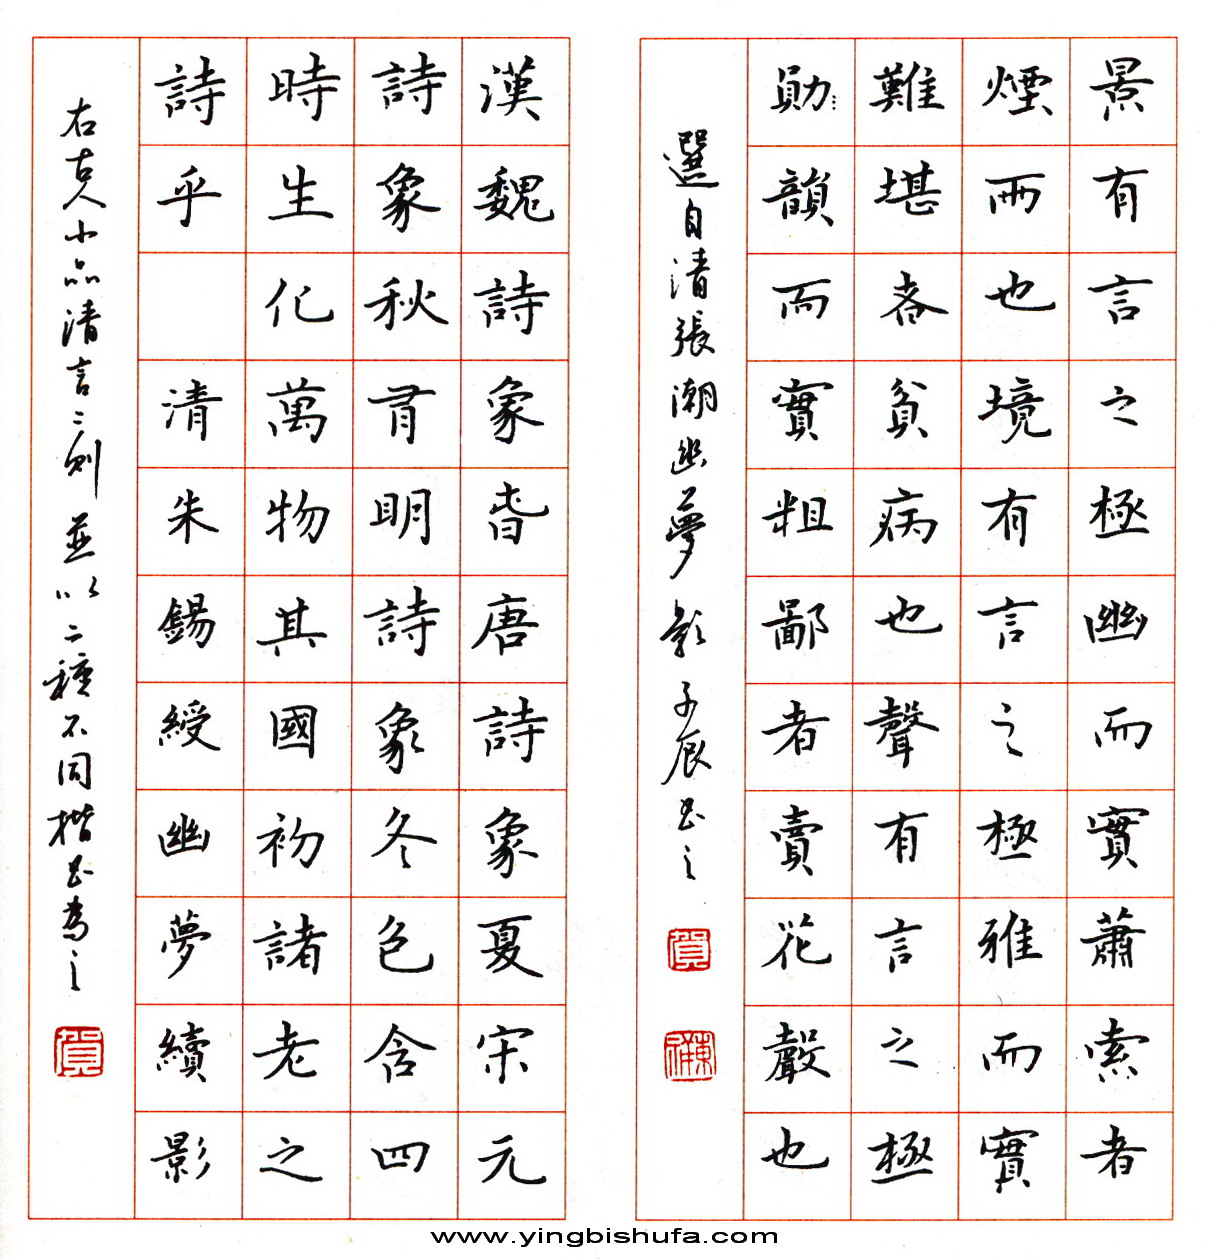 景有言之極幽而實蕭索者
煙雨也境有言之極雅而實
難堪者貧病也聲有言之極
勛韻而實粗鄙者賣花聲也
選自清張潮幽夢影 子辰書之
賀
漢魏詩象春唐詩象夏宋元
詩象秋有明詩象冬色含四
時生化萬物其國初諸老之
詩乎 清朱錫綬幽夢續影
右古人小品清言二則 並以二種不同楷書為之
賀
www.yingbishufa.com